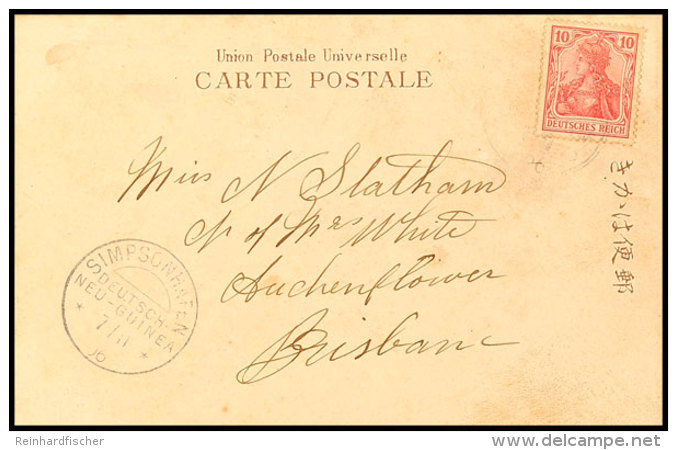 Union Postale Universelle
CARTE POSTALE
10 10
DEUTSCHES REICH
きかは便郵
Miss N Slatham
c/o of Mrs White
Auchenflower
Brisbane
SIMPSONHAFEN
DEUTSCH-
NEU-GUINEA
* 7/11 *
10
Reinhardfischer
delcampe.net